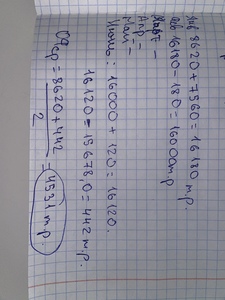 8620 + 7560 = 16180 т.р.
16180 - 180 = 16000 т.р
Апр -
Май -
= 16000 + 120 = 16120.
16120 - 15678,0 = 442 т.р.
ср = 8620 + 442 = 4531 т.р.
2